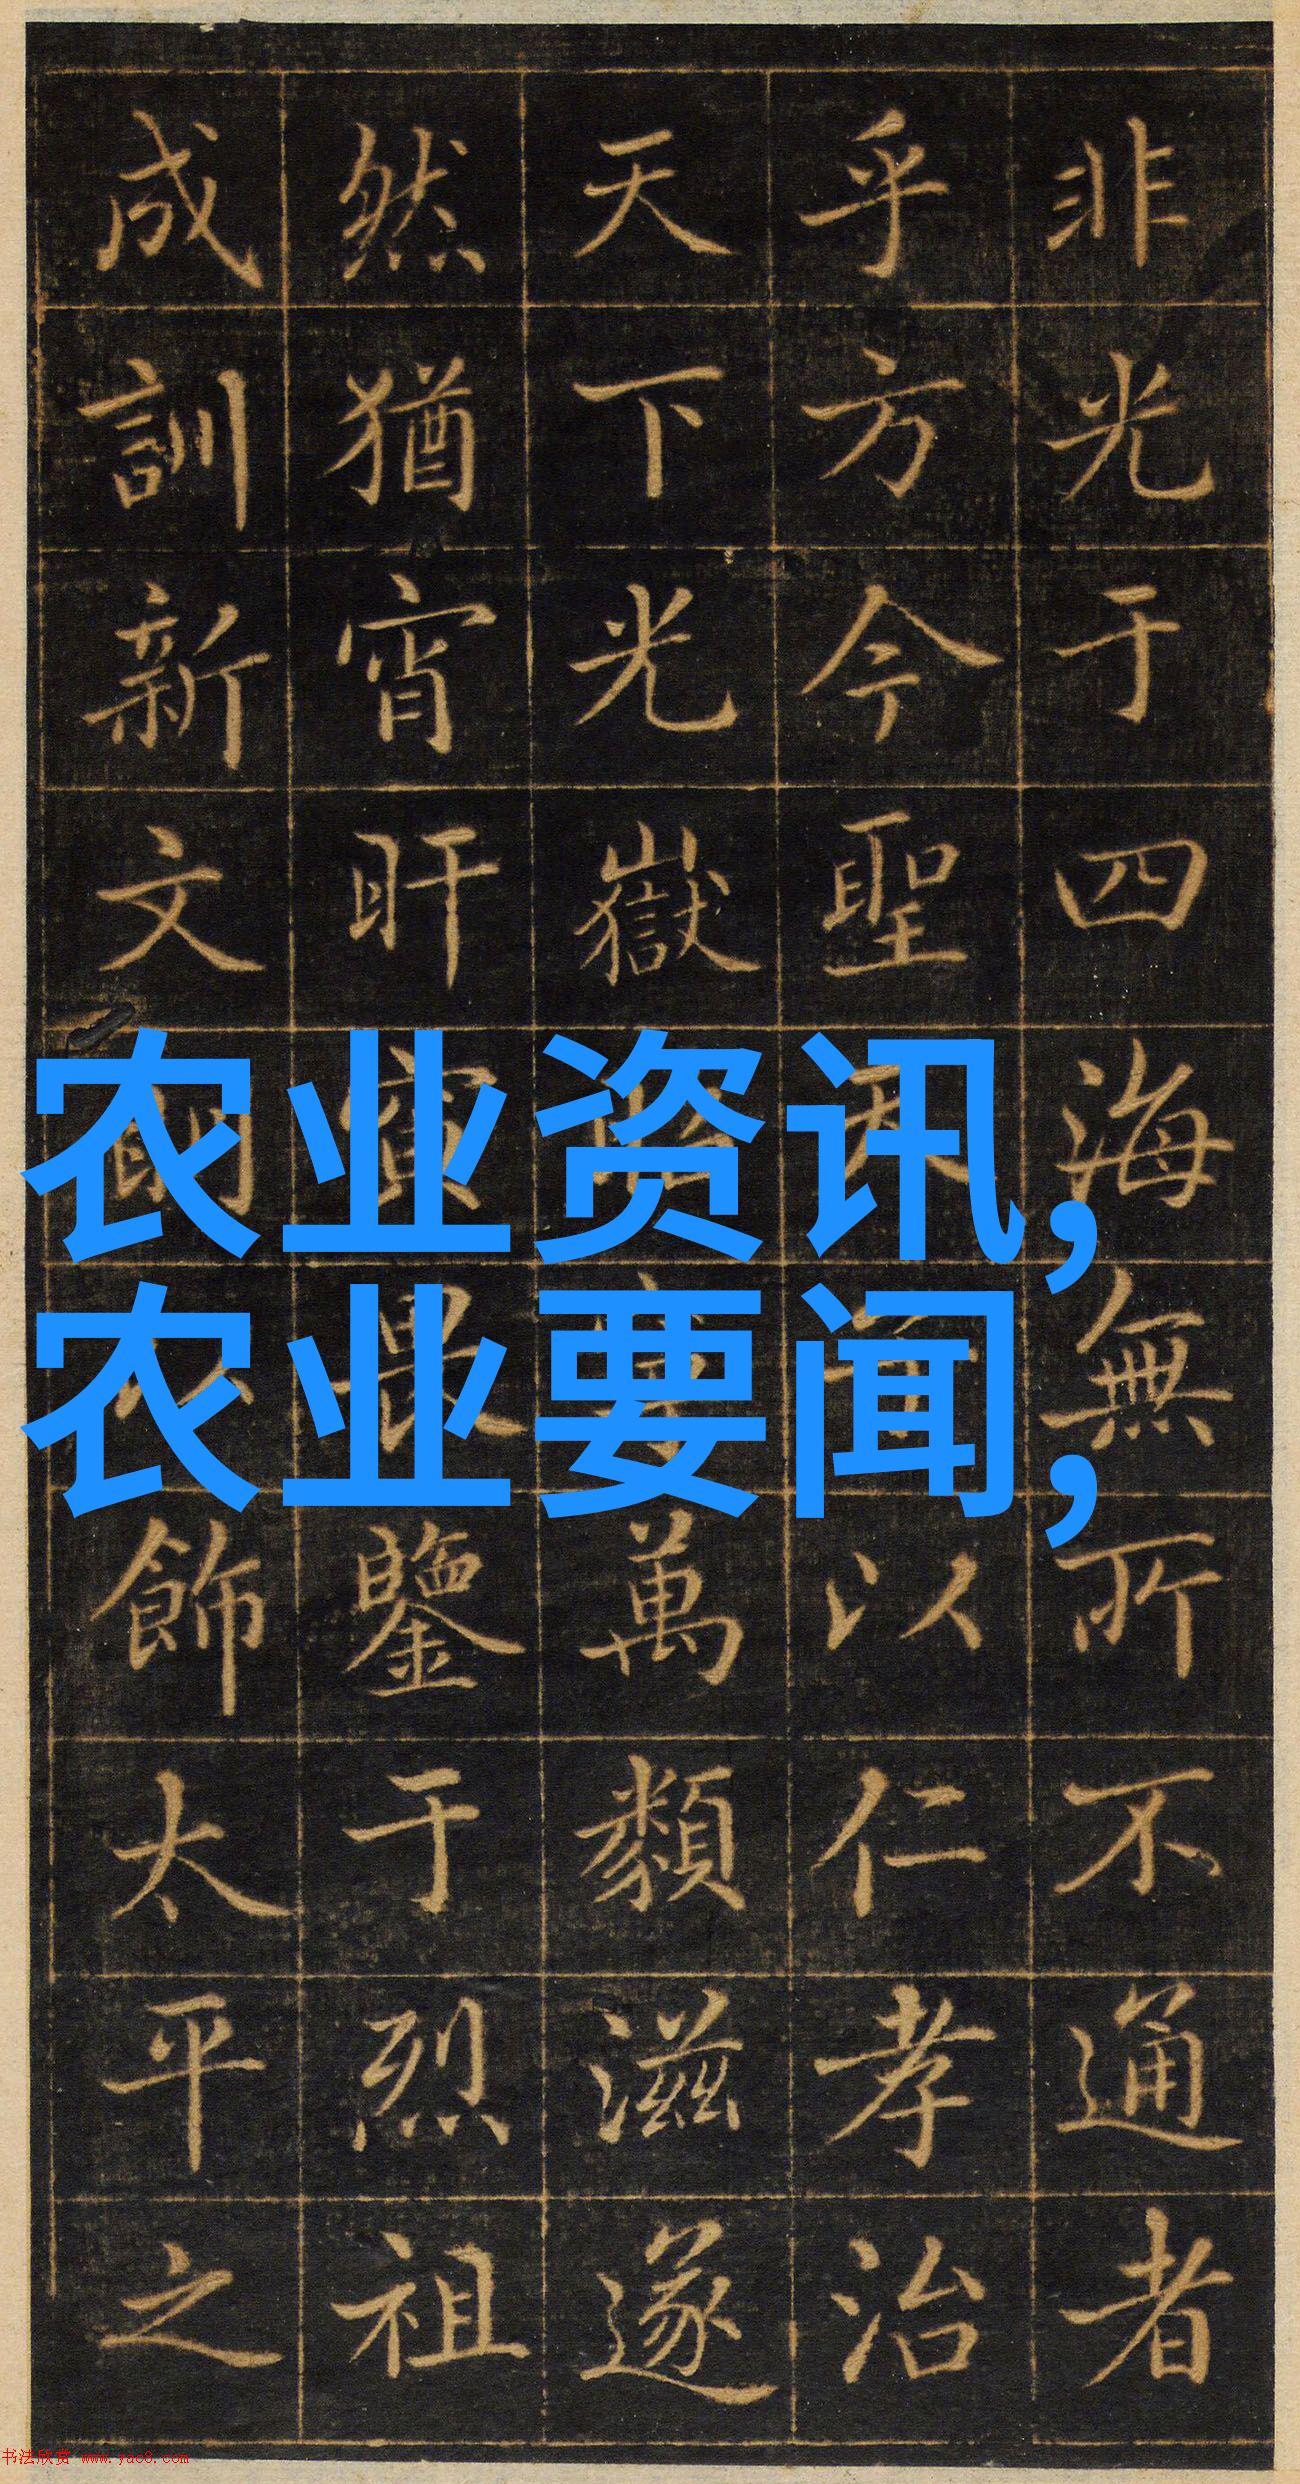 非光于四海無所不通者
乎方今聖天子以仁孝治
天下光嶽萬類滋遂
然猶宵旰寅畏鑒于烈祖
成訓新文飾太平之
农业资讯,
农业要闻,
书法欣赏 www.yac8.com